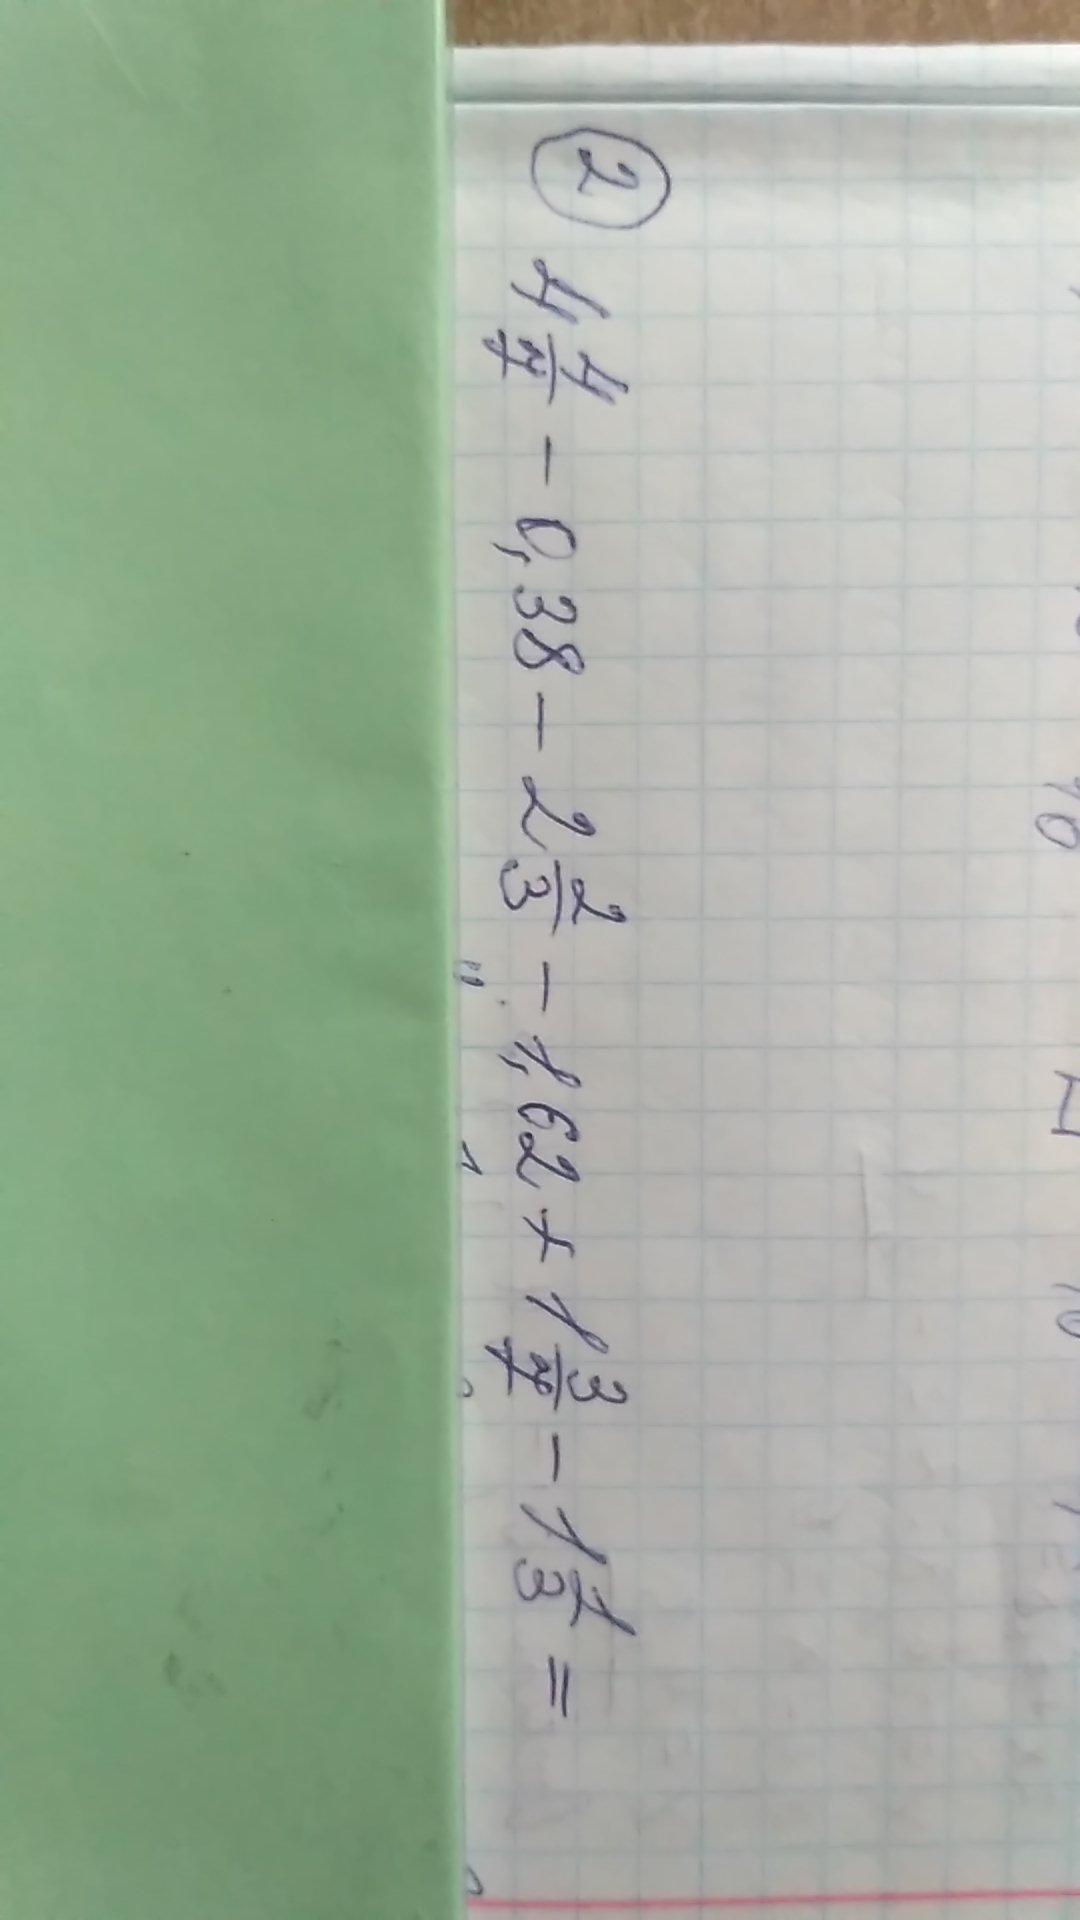 ② 4 4/7 - 0,38 - 2 2/3 - 1,62 + 1 3/7 - 1 1/3 =